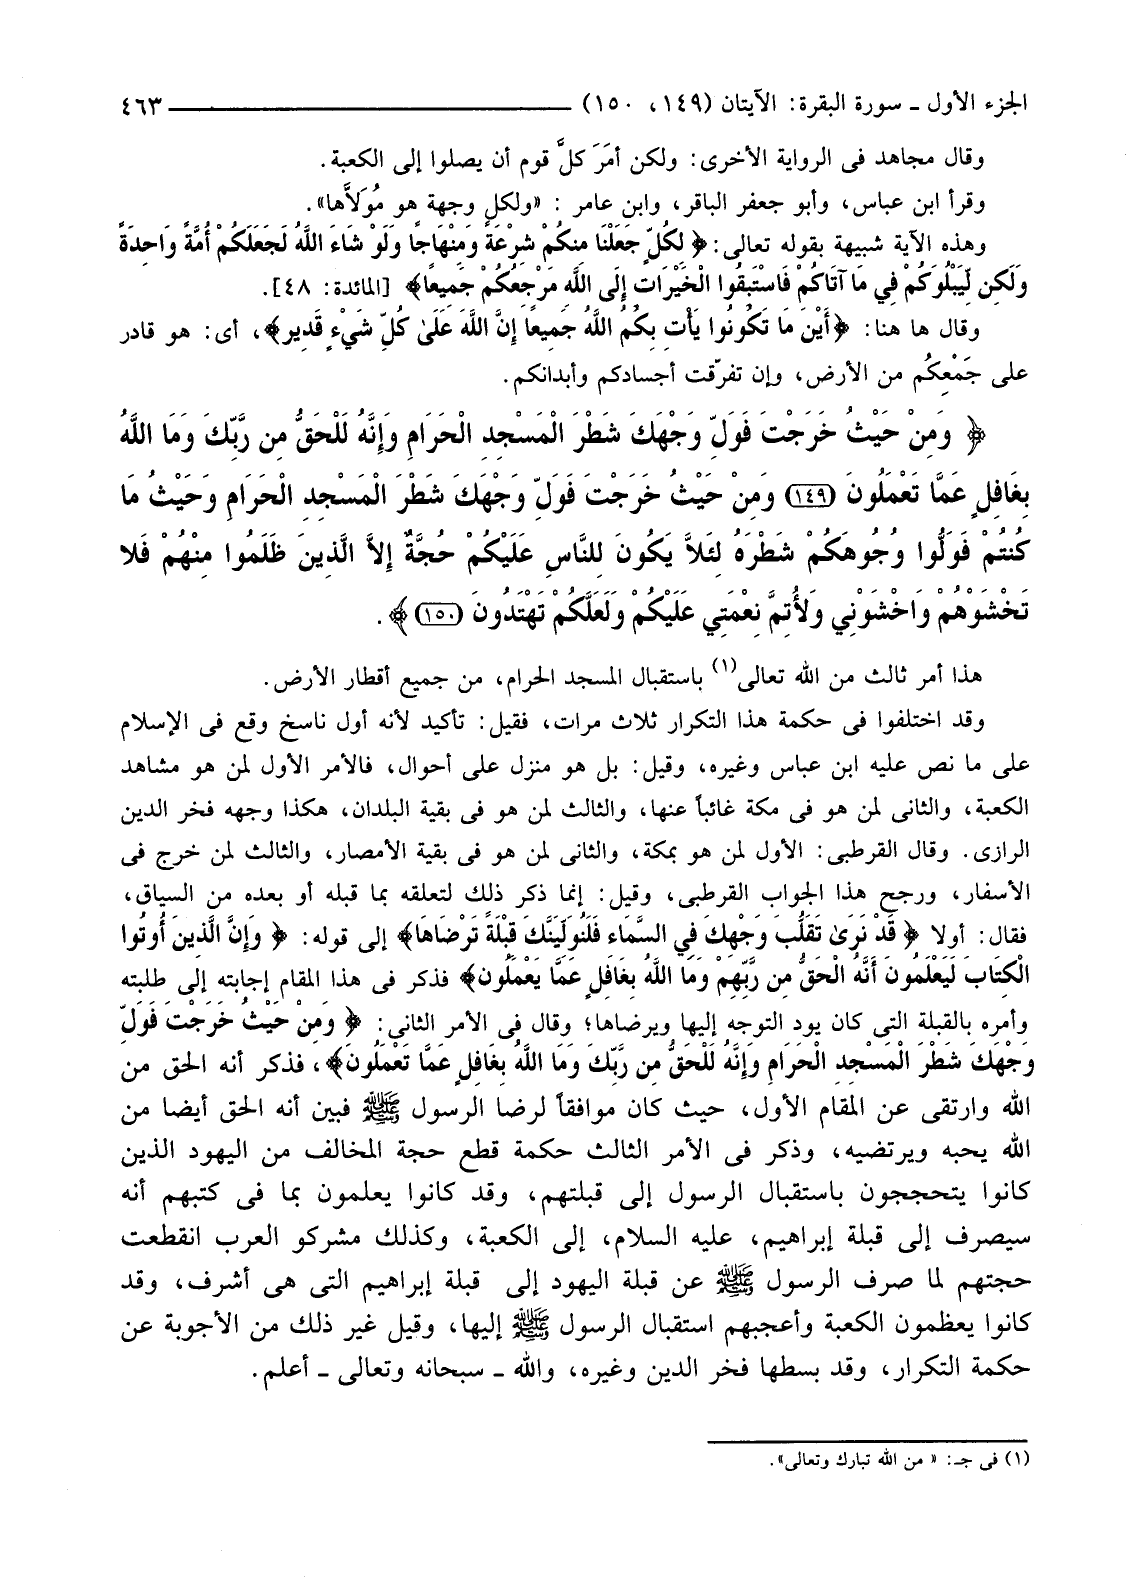 الجزء الأول ـ سورة البقرة: الآيتان (١٤٩، ١٥٠) ــــــــــــــــــــــــــــــــــــ ٤٦٣
وقال مجاهد فى الرواية الأخرى: ولكن أمَرَ كلَّ قوم أن يصلوا إلى الكعبة.
وقرأ ابن عباس، وأبو جعفر الباقر، وابن عامر : «ولكلٍ وجهة هو مُولاَّها».
وهذه الآية شبيهة بقوله تعالى: ﴿ لِكُلٍّ جَعَلْنَا مِنكُمْ شِرْعَةً وَمِنْهَاجًا وَلَوْ شَاءَ اللَّهُ لَجَعَلَكُمْ أُمَّةً وَاحِدَةً
وَلَكِن لِّيَبْلُوَكُمْ فِي مَا آتَاكُمْ فَاسْتَبِقُوا الْخَيْرَاتِ إِلَى اللَّهِ مَرْجِعُكُمْ جَمِيعًا﴾ [المائدة: ٤٨].
وقال ها هنا: ﴿أَيْنَ مَا تَكُونُوا يَأْتِ بِكُمُ اللَّهُ جَمِيعًا إِنَّ اللَّهَ عَلَىٰ كُلِّ شَيْءٍ قَدِيرٌ﴾، أى: هو قادر
على جَمْعِكُم من الأرض، وإن تفرّقت أجسادكم وأبدانكم.
﴿ وَمِنْ حَيْثُ خَرَجْتَ فَوَلِّ وَجْهَكَ شَطْرَ الْمَسْجِدِ الْحَرَامِ وَإِنَّهُ لَلْحَقُّ مِن رَّبِّكَ وَمَا اللَّهُ
بِغَافِلٍ عَمَّا تَعْمَلُونَ (١٤٩) وَمِنْ حَيْثُ خَرَجْتَ فَوَلِّ وَجْهَكَ شَطْرَ الْمَسْجِدِ الْحَرَامِ وَحَيْثُ مَا
كُنتُمْ فَوَلُّوا وُجُوهَكُمْ شَطْرَهُ لِئَلاَّ يَكُونَ لِلنَّاسِ عَلَيْكُمْ حُجَّةٌ إِلاَّ الَّذِينَ ظَلَمُوا مِنْهُمْ فَلا
تَخْشَوْهُمْ وَاخْشَوْنِي وَلأُتِمَّ نِعْمَتِي عَلَيْكُمْ وَلَعَلَّكُمْ تَهْتَدُونَ (١٥٠) ﴾ .
هذا أمر ثالث من الله تعالى(١) باستقبال المسجد الحرام، من جميع أقطار الأرض.
وقد اختلفوا فى حكمة هذا التكرار ثلاث مرات، فقيل: تأكيد لأنه أول ناسخ وقع فى الإسلام
على ما نص عليه ابن عباس وغيره، وقيل: بل هو منزل على أحوال، فالأمر الأول لمن هو مشاهد
الكعبة، والثانى لمن هو فى مكة غائباً عنها، والثالث لمن هو فى بقية البلدان، هكذا وجهه فخر الدين
الرازى. وقال القرطبى: الأول لمن هو بمكة، والثانى لمن هو فى بقية الأمصار، والثالث لمن خرج فى
الأسفار، ورجح هذا الجواب القرطبى، وقيل: إنما ذكر ذلك لتعلقه بما قبله أو بعده من السياق،
فقال: أولا ﴿ قَدْ نَرَىٰ تَقَلُّبَ وَجْهِكَ فِي السَّمَاءِ فَلَنُوَلِّيَنَّكَ قِبْلَةً تَرْضَاهَا﴾ إلى قوله: ﴿ وَإِنَّ الَّذِينَ أُوتُوا
الْكِتَابَ لَيَعْلَمُونَ أَنَّهُ الْحَقُّ مِن رَّبِّهِمْ وَمَا اللَّهُ بِغَافِلٍ عَمَّا يَعْمَلُونَ﴾ فذكر فى هذا المقام إجابته إلى طلبته
وأمره بالقبلة التى كان يود التوجه إليها ويرضاها؛ وقال فى الأمر الثانى: ﴿ وَمِنْ حَيْثُ خَرَجْتَ فَوَلِّ
وَجْهَكَ شَطْرَ الْمَسْجِدِ الْحَرَامِ وَإِنَّهُ لَلْحَقُّ مِن رَّبِّكَ وَمَا اللَّهُ بِغَافِلٍ عَمَّا تَعْمَلُونَ﴾، فذكر أنه الحق من
الله وارتقى عن المقام الأول، حيث كان موافقاً لرضا الرسول ﷺ فبين أنه الحق أيضا من
الله يحبه ويرتضيه، وذكر فى الأمر الثالث حكمة قطع حجة المخالف من اليهود الذين
كانوا يتحججون باستقبال الرسول إلى قبلتهم، وقد كانوا يعلمون بما فى كتبهم أنه
سيصرف إلى قبلة إبراهيم، عليه السلام، إلى الكعبة، وكذلك مشركو العرب انقطعت
حجتهم لما صرف الرسول ﷺ عن قبلة اليهود إلى قبلة إبراهيم التى هى أشرف، وقد
كانوا يعظمون الكعبة وأعجبهم استقبال الرسول ﷺ إليها، وقيل غير ذلك من الأجوبة عن
حكمة التكرار، وقد بسطها فخر الدين وغيره، والله ـ سبحانه وتعالى ـ أعلم.
(١) فى جـ: « من الله تبارك وتعالى».